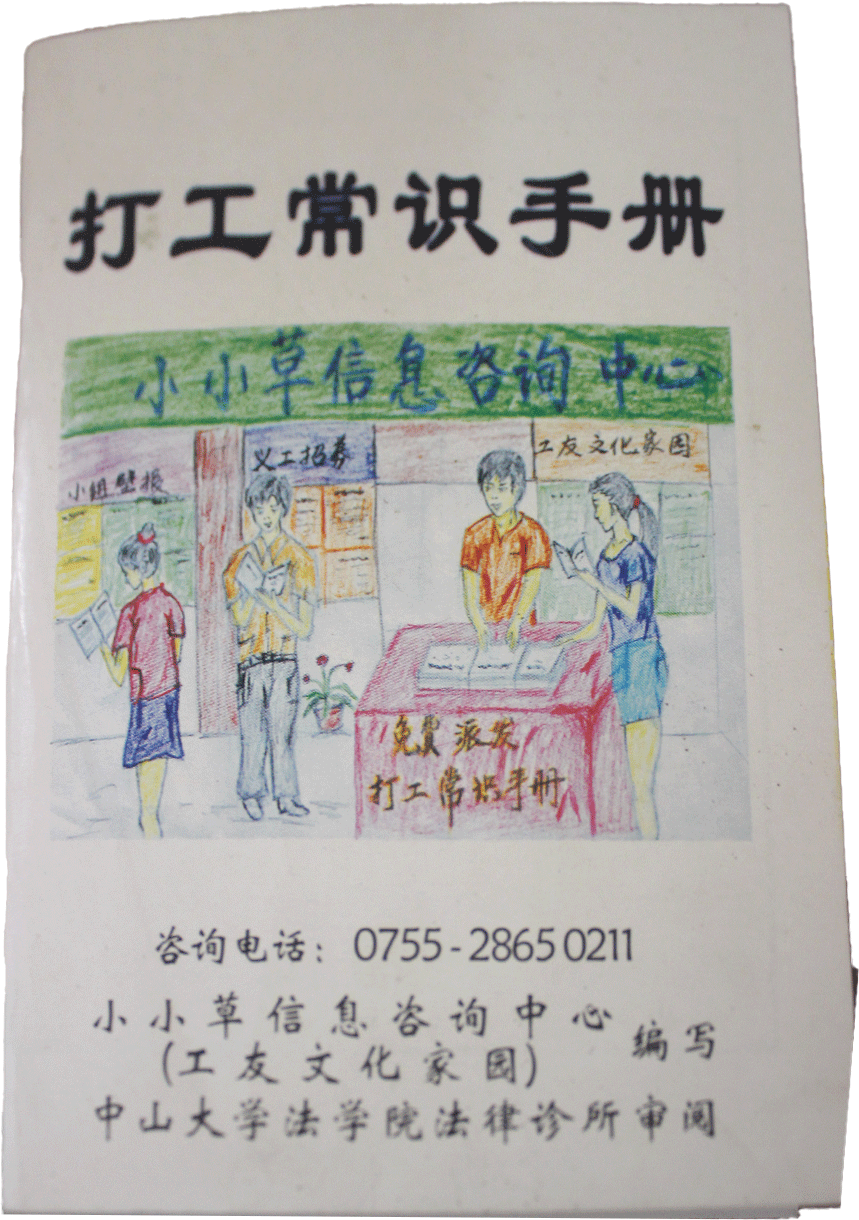 打工常识手册
小小草信息咨询中心
小组壁报
义工招募
工友文化家园
免费派发
打工常识手册
咨询电话：0755-28650211
小小草信息咨询中心
(工友文化家园)
编写
中山大学法学院法律诊所审阅